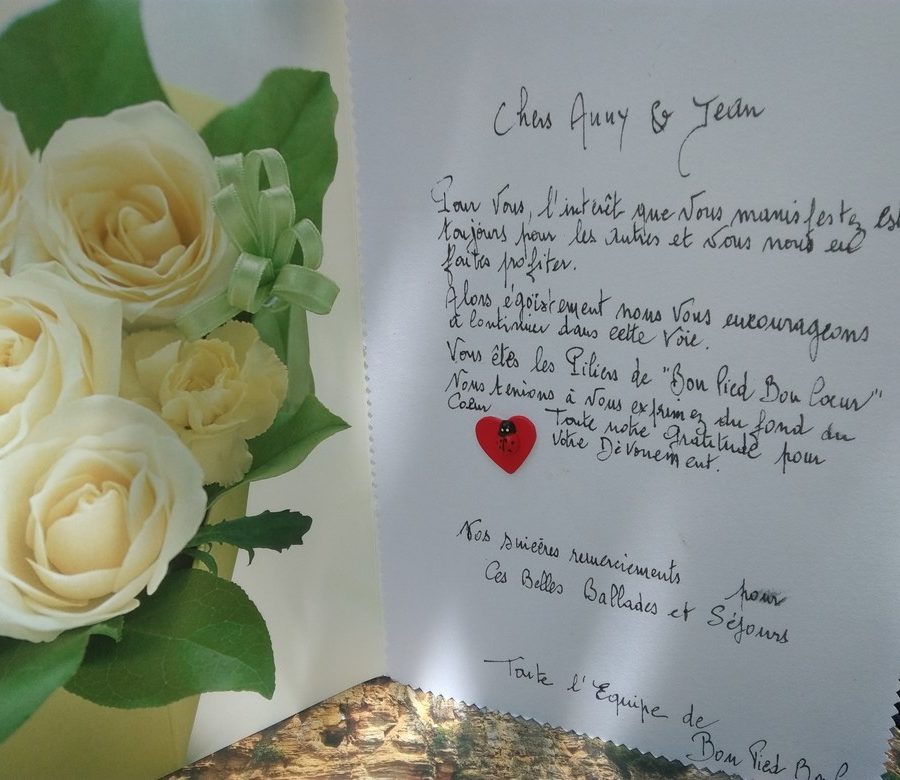 Chers Anny & Jean
Pour Vous, l'intérêt que Vous manisfestez est
toujours pour les autres et Vous nous en
faites profiter.
Alors égoïstement nous Vous encourageons
à continuer dans cette Voie.
Vous êtes les Piliers de "Bon Pied Bon Coeur"
Nous tenions à Vous exprimez du fond du
Coeur
Toute notre Gratitude pour
Votre Dévouement.
Nos sincères remerciements pour
Ces Belles Ballades et Séjours
Toute l'Equipe de
Bon Pied Bon